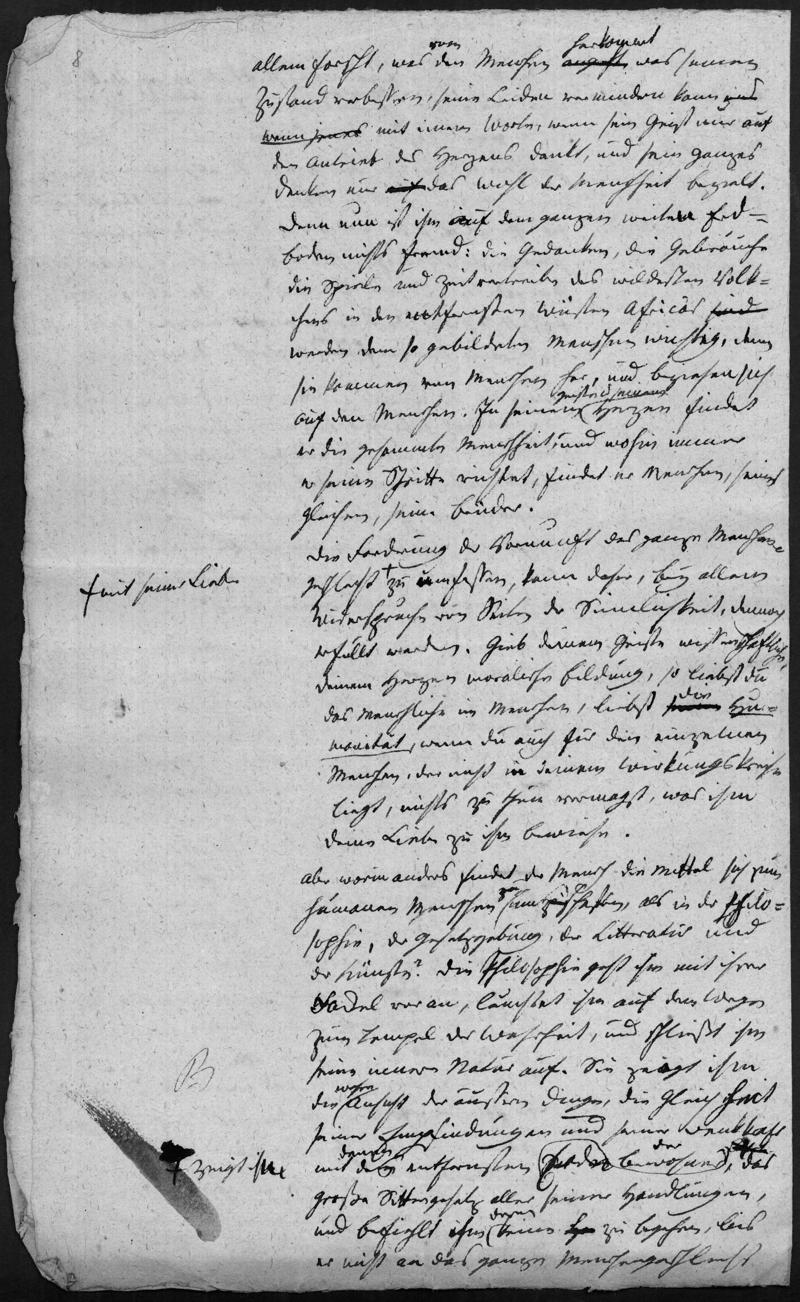 8
allem forscht, was vom den Menschen herkommt angeht was seinen
Zustand verbessern, seine Leiden vermindern kann und
wenn jenes mit einem Worte, wenn sein Geist nur auf
den Antrieb des Herzens denkt, und sein ganzes
denken nur auf das Wohl der Menschheit bezielt.
Denn nun ist ihm auf dem ganzen weiten Erd=
boden nichts fremd: die Gedanken, die Gebräuche
die Spiele und Zeitvertreibe des wildesten Völk=
chens in den entferntesten Wüsten Africas sind
werden dem so gebildeten Menschen wichtig, denn
sie kommen von Menschen her, und beziehen sich
auf den Menschen. In seinem Herzen findet
er die gesammte Menschheit, und wohin immer
er seine Schritte richtet, findet er Menschen, seines
gleichen, seine Brüder.
Die Forderung der Vernunft das ganze Menschen=
geschlecht † zu umfassen, kann daher, bey allem
† mit seiner Liebe
Widerspruche von Seiten der Sinnlichkeit, dennoch
erfüllt werden. Gieb deinem Geiste wissenschaftliche,
deinem Herzen moralische Bildung, so liebst du
das Menschliche im Menschen, liebst seine die Hu=
manität, wenn du auch für den einzelnen
Menschen, der nicht in deinem Wirkungskreise
liegt, nichts zu thun vermagst, was ihm
deine Liebe zu ihm bewiese.
Aber worin anders findet der Mensch die Mittel sich zum
humanen Menschen zu, als in der Philo=
sophie, der Gesetzgebung, der Litteratur und
der Künste? Die Philosophie geht ihm mit ihrer
Fackel voran, leuchtet ihm auf dem Wege
zum Tempel der Wahrheit, und schließt ihm
seine innere Natur auf. Sie zeigt ihm
die wahre Ansicht der äussern Dinge, die Gleichheit
seiner Empfindungen und seiner Denkkraft
mit denen des entferntesten Erdenbewohners, das
† zeigt ihm
große Sittengesetz aller seiner Handlungen,
und befiehlt ihm keine deren zu begehen, bis
er nicht an das ganze Menschengeschlecht